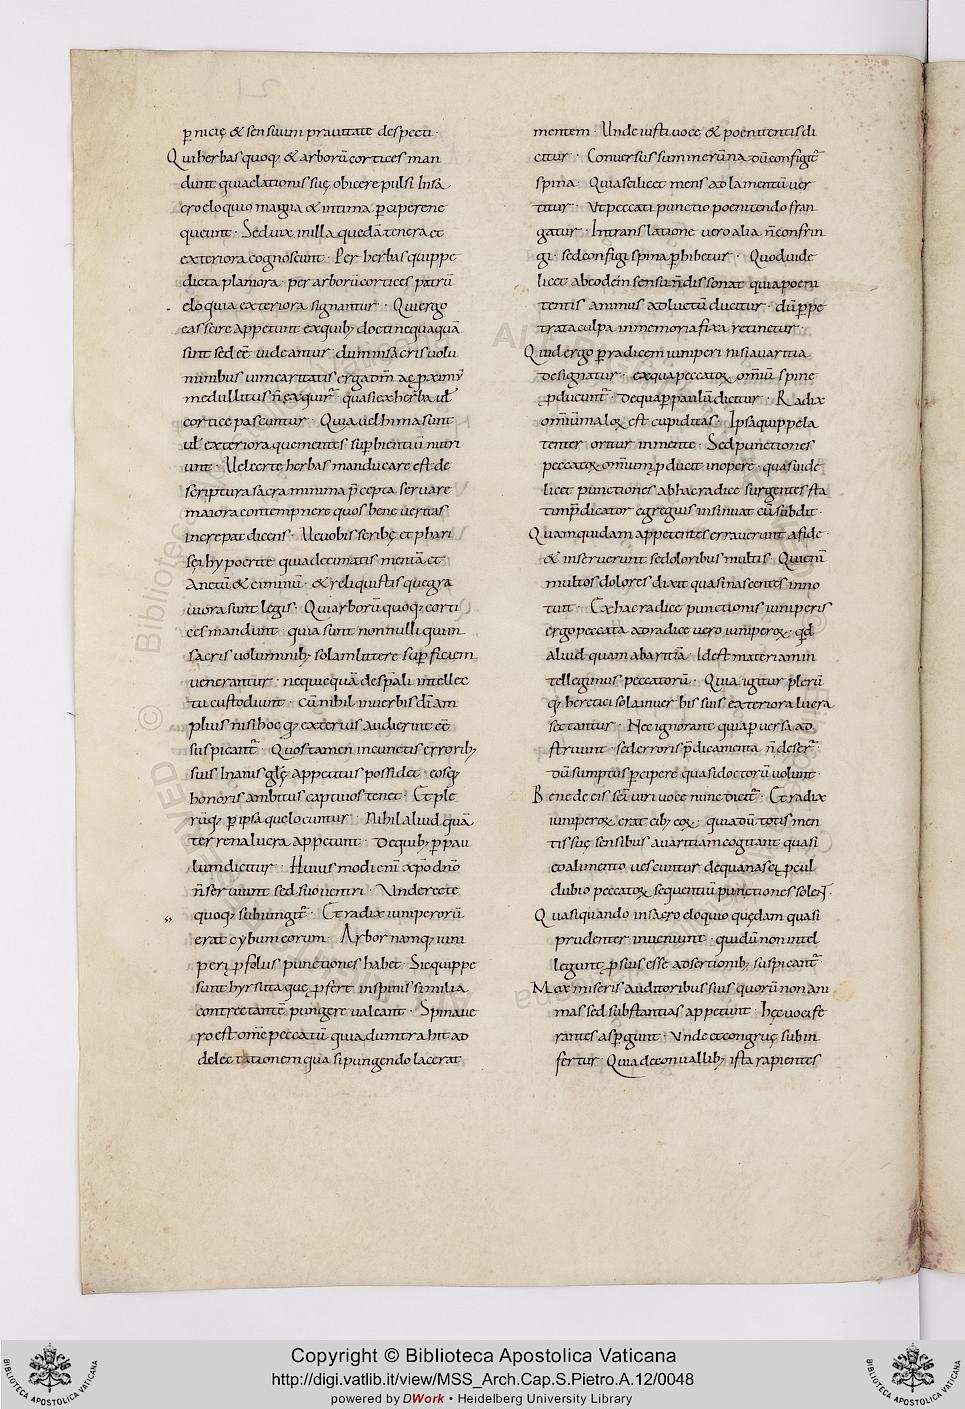 p̱nicię & sensuum prauitate despecti ·
Qui herbas quoq; & arborū cortices man
dunt quia elationis suę obice repulsi In sa
cro eloquio magna & intima p̱cipere ne
queunt · Sed uix in illa quędā tenera et
exteriora cognoscunt · Per herbas quippe
dicta planiora · per arborū cortices patrū
eloquia exteriora signantur · Qui ergo
eas scire appetunt ex quib; docti nequaquā
sint sed eē uideantur dum in sacris uolu
minibus uim caritatis erga dm̄ ac p̱ximū
medullitus n̄ exquir̄t · quasi ex herba uł
cortice pascuntur · Quia uel hima sunt
uł exteriora que mentes sup̱bientiū nutri
unt · Uel certe herbas manducare est de
scriptura sacra minima p̄cepta seruare
maiora contempnere quos bene ueritas
increpat dicens · Ue uobis scribę et phari
sęi hypocritę quia decimatis mentā et
Anetū & ciminū · & reliquistis que gra
uiora sunt legis · Qui arborū quoq; corti
ces mandunt · quia sunt nonnulli qui in
sacris uoluminib; solam littere sup̱ficiem
uenerantur · nec quicquā de sp̄ali intellec
tu custodiunt · Cū nihil in uerbis dī am
plius nisi hoc q; exterius audierint eē
suspicant̄ · Quos tamen in cunctis errorib;
suis Inanis glę appetitus possidet · eosq;
honoris ambitus captiuos tenet · Et ple
rūq; p̱ ipsa que locuntur · Nihil aliud quā
terrena lucra appetunt · De quib; p̱ pau
lum dicitur · Huius modi enī xp̄o dn̄o
n̄ seruiunt sed suo uentri · Unde recte
quoq; subiungit̄ · Et radix iuniperorū
erat cybum eorum · Arbor namq; iuni
perį p̱ foliis punctiones habet · Sic quippe
sunt hyrsuta quę p̱fert in spinis similia
contrectantē pungere ualeant · Spina ue
ro est om̄e peccatū quia dum trahit ad
delectationem quasi pungendo lacerat
mentem · Unde iusti uoce & poenitentis di
citur · Conuersus sum in erūna dū configit̄
spina · Quia scilicet mens ad lamentū uer
titur · Ut peccati punctio poenitendo fran
gatur · In translatione uero alia n̄ confrin
gi · sed configi spina p̱hibetur · Quod uide
licet ab eodem sensu n̄ dissonat quia poeni
tentis animus ad luctū ducitur · dū p̱pe
trata culpa in memoria fixa retinetur ·
Quid ergo p̱ radicem iuniperi nisi auaritia
designatur · ex qua peccatoꝝ omīū spine
p̱ducunt̄ · De qua p̱ paulū dicitur · Radix
omīū maloꝝ est cupiditas · Ipsa quippe la
tenter oritur in mente · Sed punctiones
peccatoꝝ omīum p̱ducit in opere · quas uide
licet punctiones ab hac radice surgentes sta
tim p̄dicator egregius insinuat cū subdit ·
Quam quidam appetentes errauerunt a fide ·
& inseruerunt se doloribus multis · Qui enī
multos dolores dixit quasi nascentes inno
tuit · Ex hac radice punctionis iuniperis
ergo peccata ad radice uero iuniperoꝝ · qd̄
Aliud quam abaritia · Id est materiam in
tellegimus peccatorū · Quia igitur plerū
q; heretici sola in uerbis suis exteriora lucra
sectantur · Nec ignorant quia p̱uersa ad
struunt · sed erroris p̄dicamenta n̄ deser̄t
dū sumptus p̱cipere quasi doctorū uolunt ·
Bene de eis scī uiri uoce nunc dicit̄ · Et radix
iuniperoꝝ erat cib; eoꝝ · quia dū totis men
tis suę sensibus auaritiam cogitant quasi
eo alimento uescuntur de qua nasci p̱cul
dubio peccatoꝝ sequentiū punctiones solent ·
Qui si quando in sacro eloquio quędam quasi
prudenter inueniunt · qui dū non intel
legunt p̱ suis esse adsertionib; suspicant̄ ·
Mox miseris auditoribus suis quorū non ani
mas sed substantias appetunt · hęc uocife
rantes asp̱gunt · Unde et congruę subin
fertur · Qui a de conuallib; ista rapientes
Copyright © Biblioteca Apostolica Vaticana
http://digi.vatlib.it/view/MSS_Arch.Cap.S.Pietro.A.12/0048
powered by DWork • Heidelberg University Library